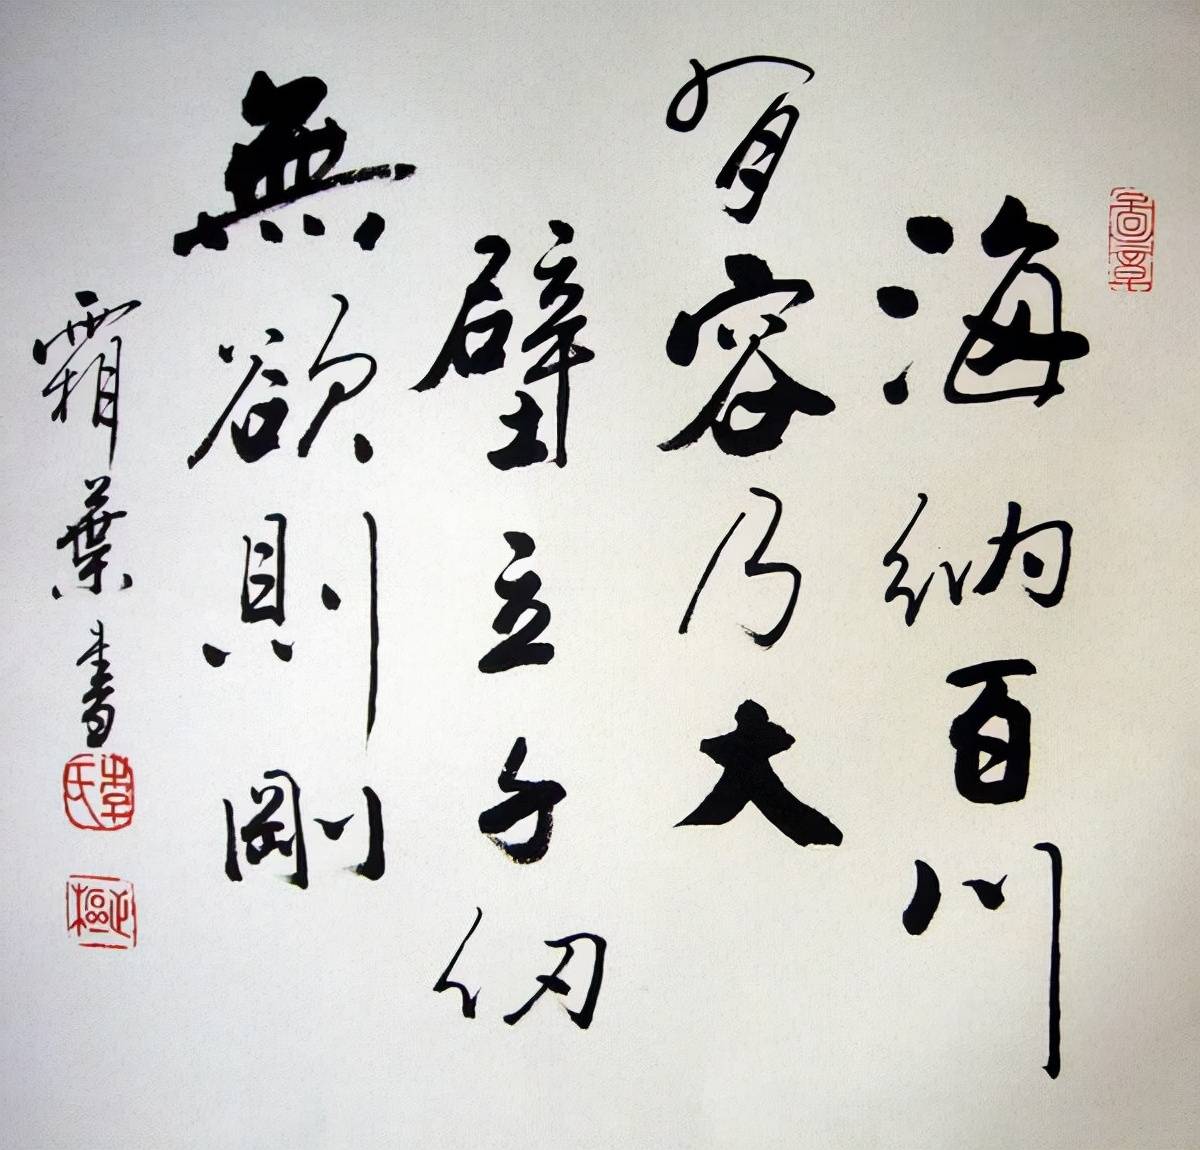 海納百川
有容乃大
壁立千仞
無欲則剛
霜葉書
李氏